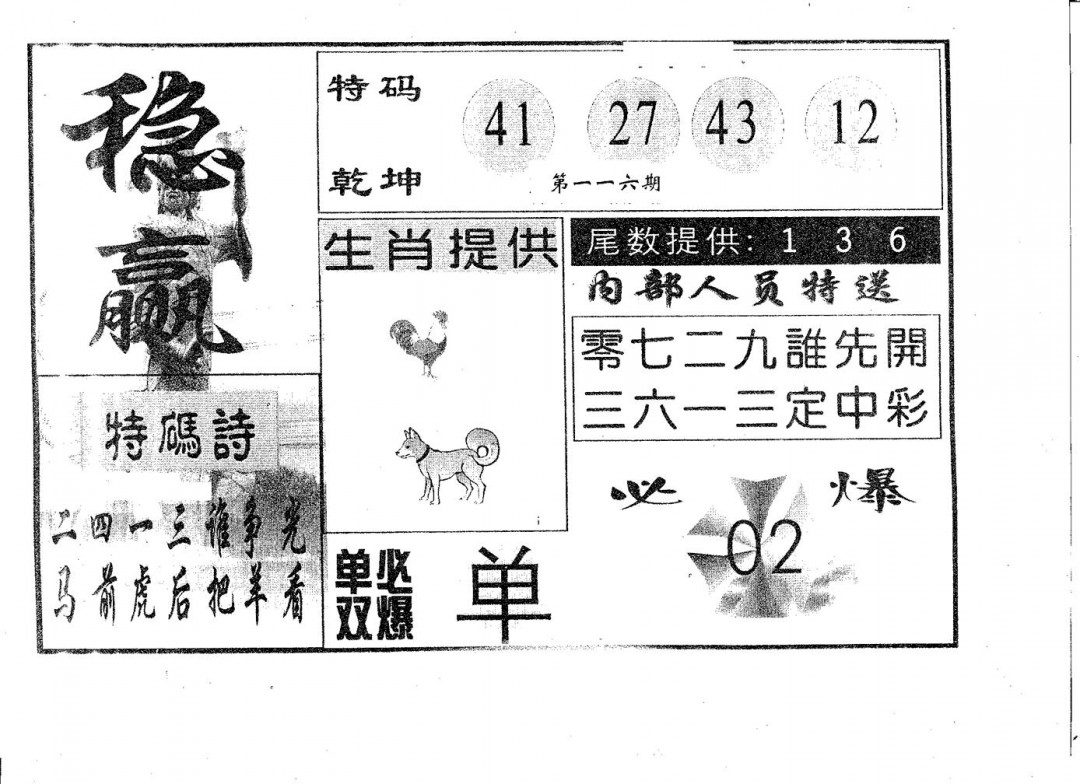 稳赢
特码
乾坤
41 27 43 12
第一一六期
生肖提供
尾数提供: 1 3 6
内部人员特送
零七二九誰先開
三六一三定中彩
特碼詩
二四一三谁争光
马前虎后把羊看
单双
必爆
单
必爆
02